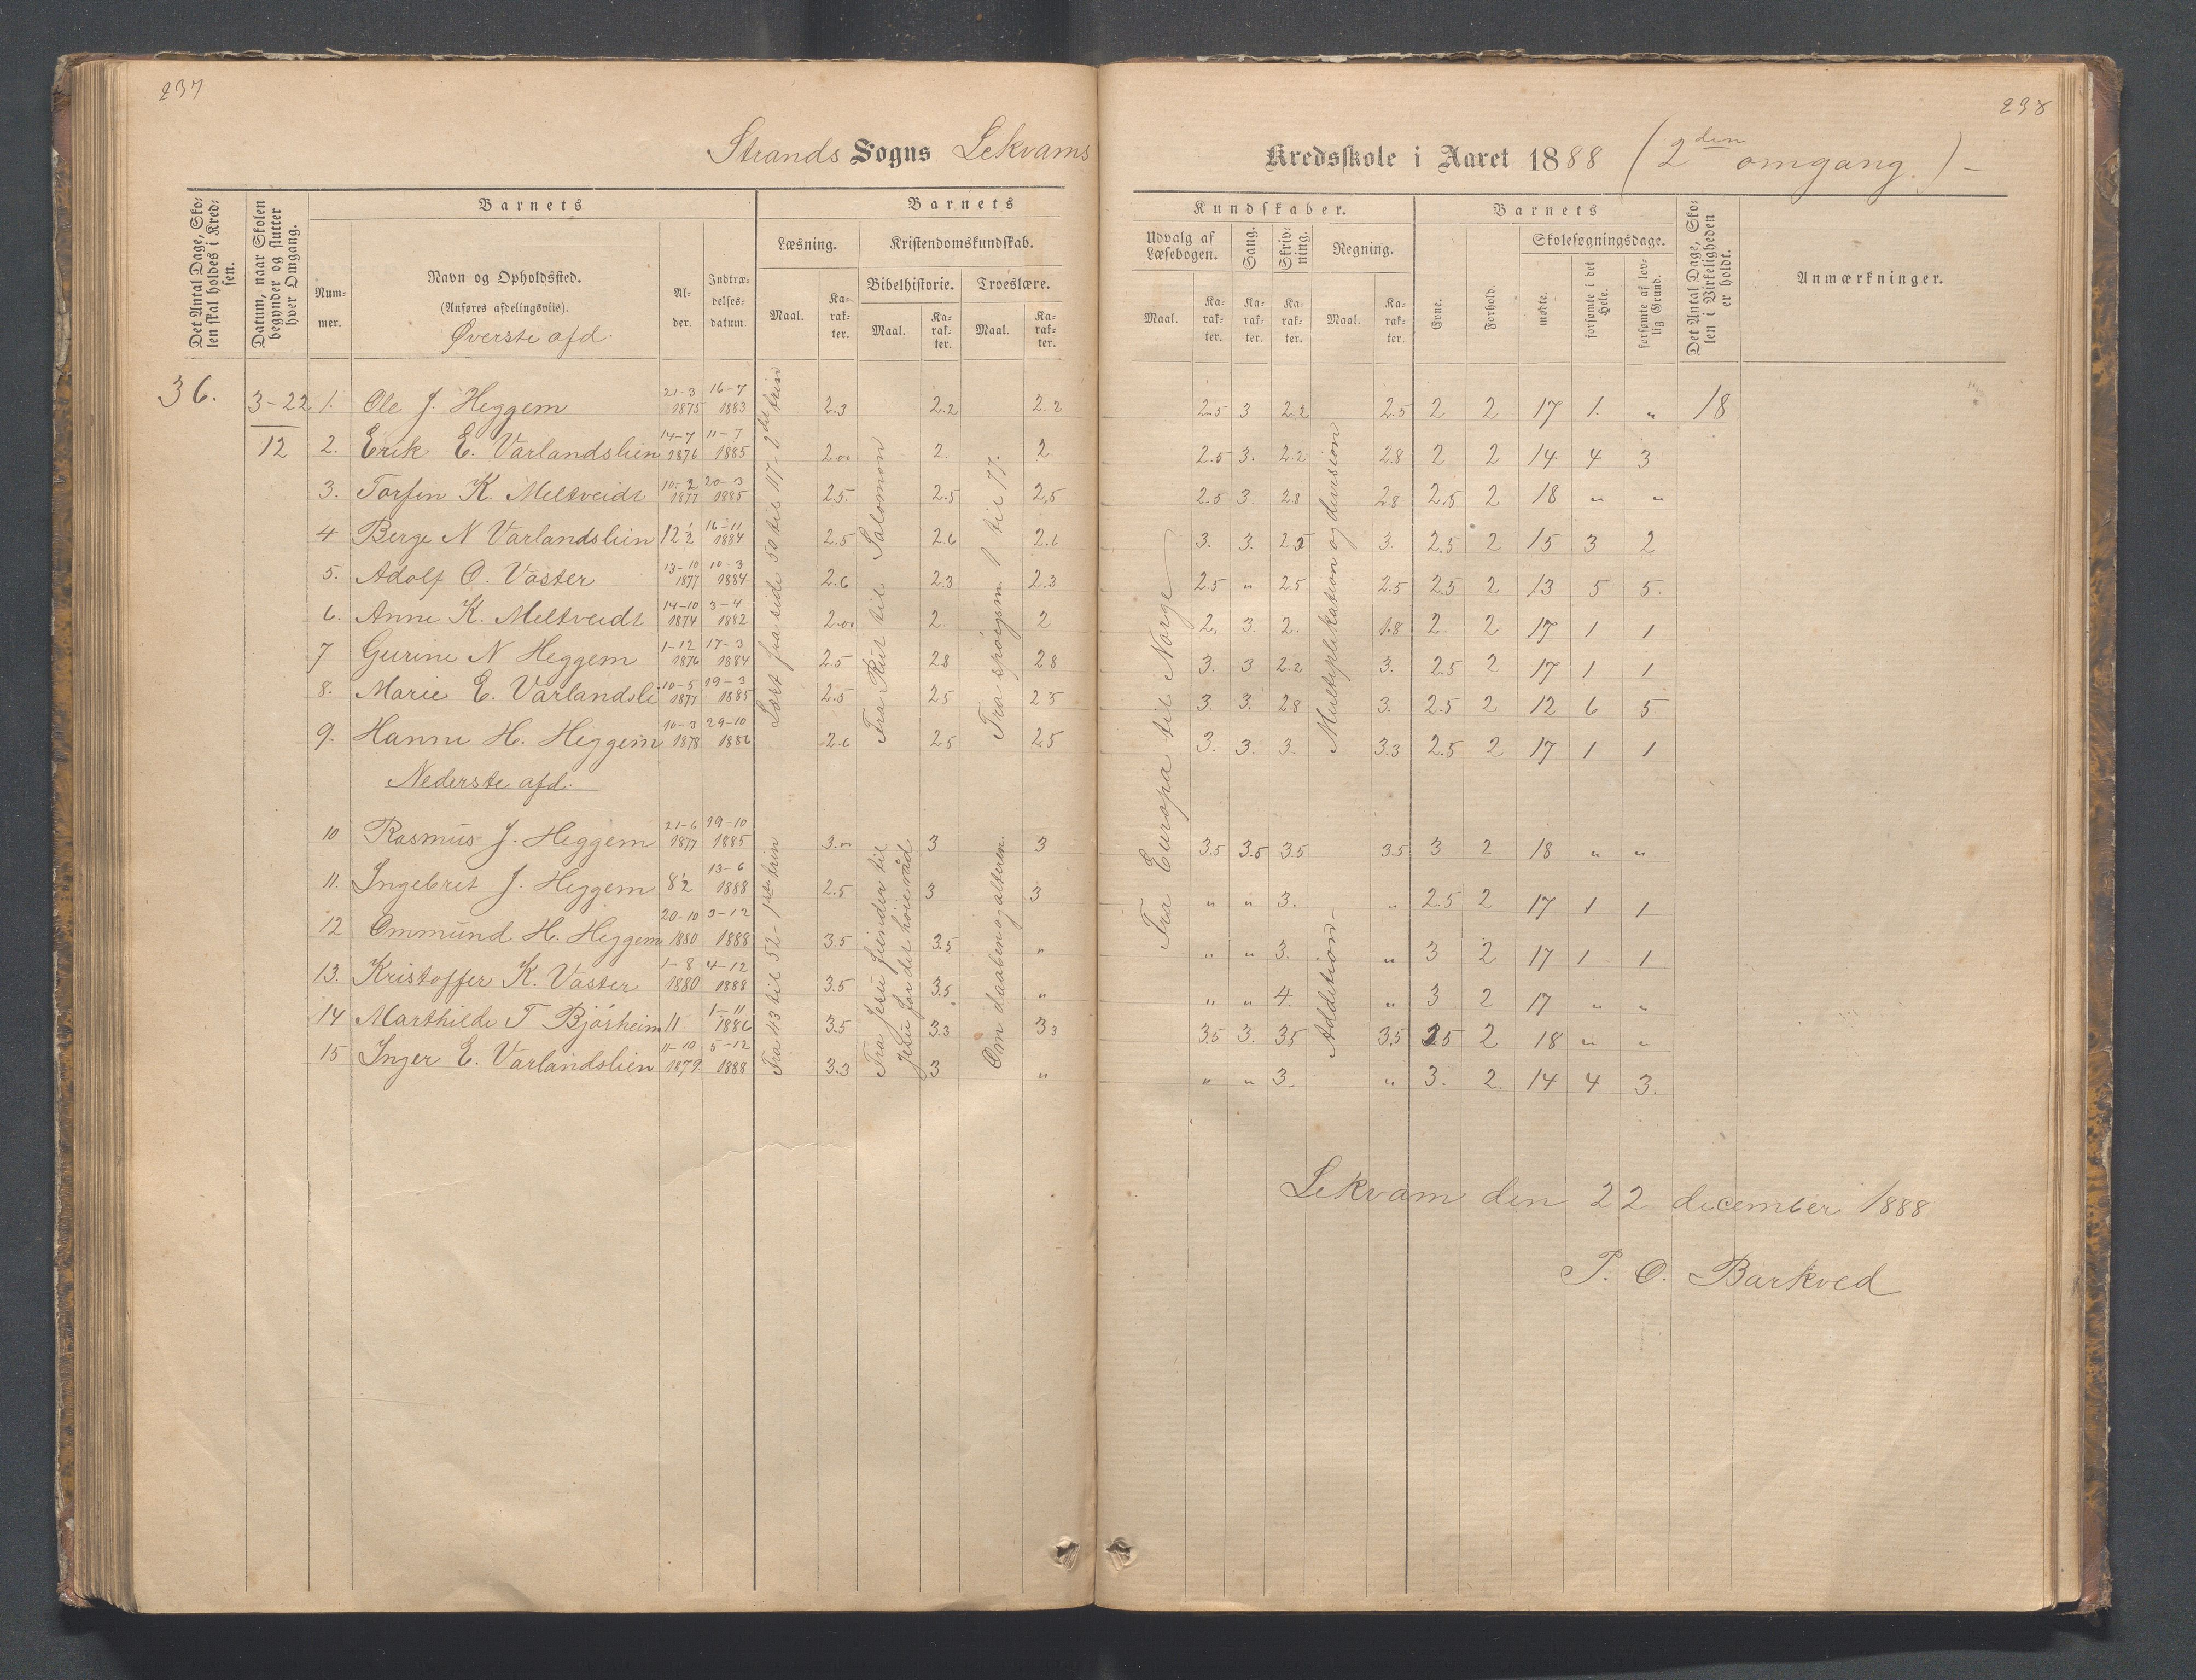 237
238
Strands Sogns Lekvams Kredsskole i Aaret 1888 (2den omgang.) -
Det Antal Dage, Sko-
len skal holdes i Kred-
sen.
Datum, naar Skolen
begynder og slutter
hver Omgang.
Barnets
Num-
mer.
Navn og Opholdssted.
(Anføres afdelingsviis).
Øverste afd.
Al-
der.
Indtræ-
delses-
datum.
Barnets
Læsning.
Maal.
Ka-
rak-
ter.
Kristendomskundskab.
Bibelhistorie.
Maal.
Ka-
rak-
ter.
Troeslære.
Maal.
Ka-
rak-
ter.
Kundskaber.
Udvalg af
Læsebogen.
Maal.
Ka-
rak-
ter.
Sang.
Ka-
rak-
ter.
Skriv-
ning.
Ka-
rak-
ter.
Regning.
Maal.
Ka-
rak-
ter.
Barnets
Evne.
Forhold.
Skolesøgningsdage.
mødte.
forsømte i det
Hele.
forsømte af lov-
lig Grund.
Det Antal Dage, Sko-
len i Virkeligheden
er holdt.
Anmærkninger.
36. 3-22/12 1. Ole J. Heggem 21-3 1875 16-7 1883 2.3 2.2 2.2 2.5 3 2.2 2.5 2 2 17 1. " 18
2. Erik E. Varlandslien 14-7 1876 11-7 1885 2.00 2. 2 2.5 3. 2.2 2.8 2 2 14 4 3
3. Torfin K. Meltveidt 10-2 1877 20-3 1885 2.5. 2.5 2.5 2.5 3. 2.8 2.8 2.5 2 18 " "
4 Berge N Varlandslien 12 1/2 16-11 1884 2.5 2.6 2.6 3. 3. 2.5 3. 2.5 2 15 3 2
5. Adolf O. Vaster 13-10 1877 10-3 1884 2.6 2.3 2.3 2.5 " 2.5 2.5 2.5 2 13 5 5.
6. Anne K. Meltveidt 14-10 1874 3-4 1882 2.00 2. 2 2. 3. 2. 1.8 2. 2 17 1 1
7 Gurine N Heggem 1-12 1876 17-3 1884 2.5 2.8 2.8 3. 3 2.2 3. 2.5 2 17 1 1
8. Marie E. Varlandsli 10-5 1877 19-3 1885 2.5 2.5 2.5 3. 3. 2.8 3. 2.5 2 12 6 5
9. Hanne H. Heggem 10-3 1878 29-10 1886 2.6 2.5 2.5 3. 3. 3. 3.3 2.5 2 17 1 1
Læst fra side 50 til 117 - 2det trin
Fra Rut til Salomon
Fra spörgsm. 1 til 77.
Fra Europa til Norge
Multiplikation og division
Nederste afd.
10 Rasmus J. Heggem 21-6 1877 19-10 1885 3.00 3 3 3.5 3.5 3.5 3.5 3 2 18 " "
11. Ingebret J. Heggem 8 1/2 13-6 1888 2.5 3 3 " " 3. " 2.5 2 17 1 1
12 Ommund H. Heggem 20-10 1880 3-12 1888 3.5 3.5 " " " 3. " 3 2 17 1 1
13. Kristoffer K. Vaster 1-8 1880 4-12 1888 3.5 3.5 " " " 4. " 3 2 17 " "
14 Marthilde T Bjórheim 11 1-11 1886 3.5 3.3 3.3 3.5 3. 3.5 3.5 3.5 2 18 " "
15 Inger E. Varlandslien 11-10 1879 5-12 1888 3.3 3 " " " 3. " 3. 2. 14 4 3.
Fra 43 til 52 - 1ste trin
Fra Jesu fiender til
Jesu for det höie råd
Om daaben og alteren.
Addition -
Lekvam den 22 december 1888
P. O. Barkved